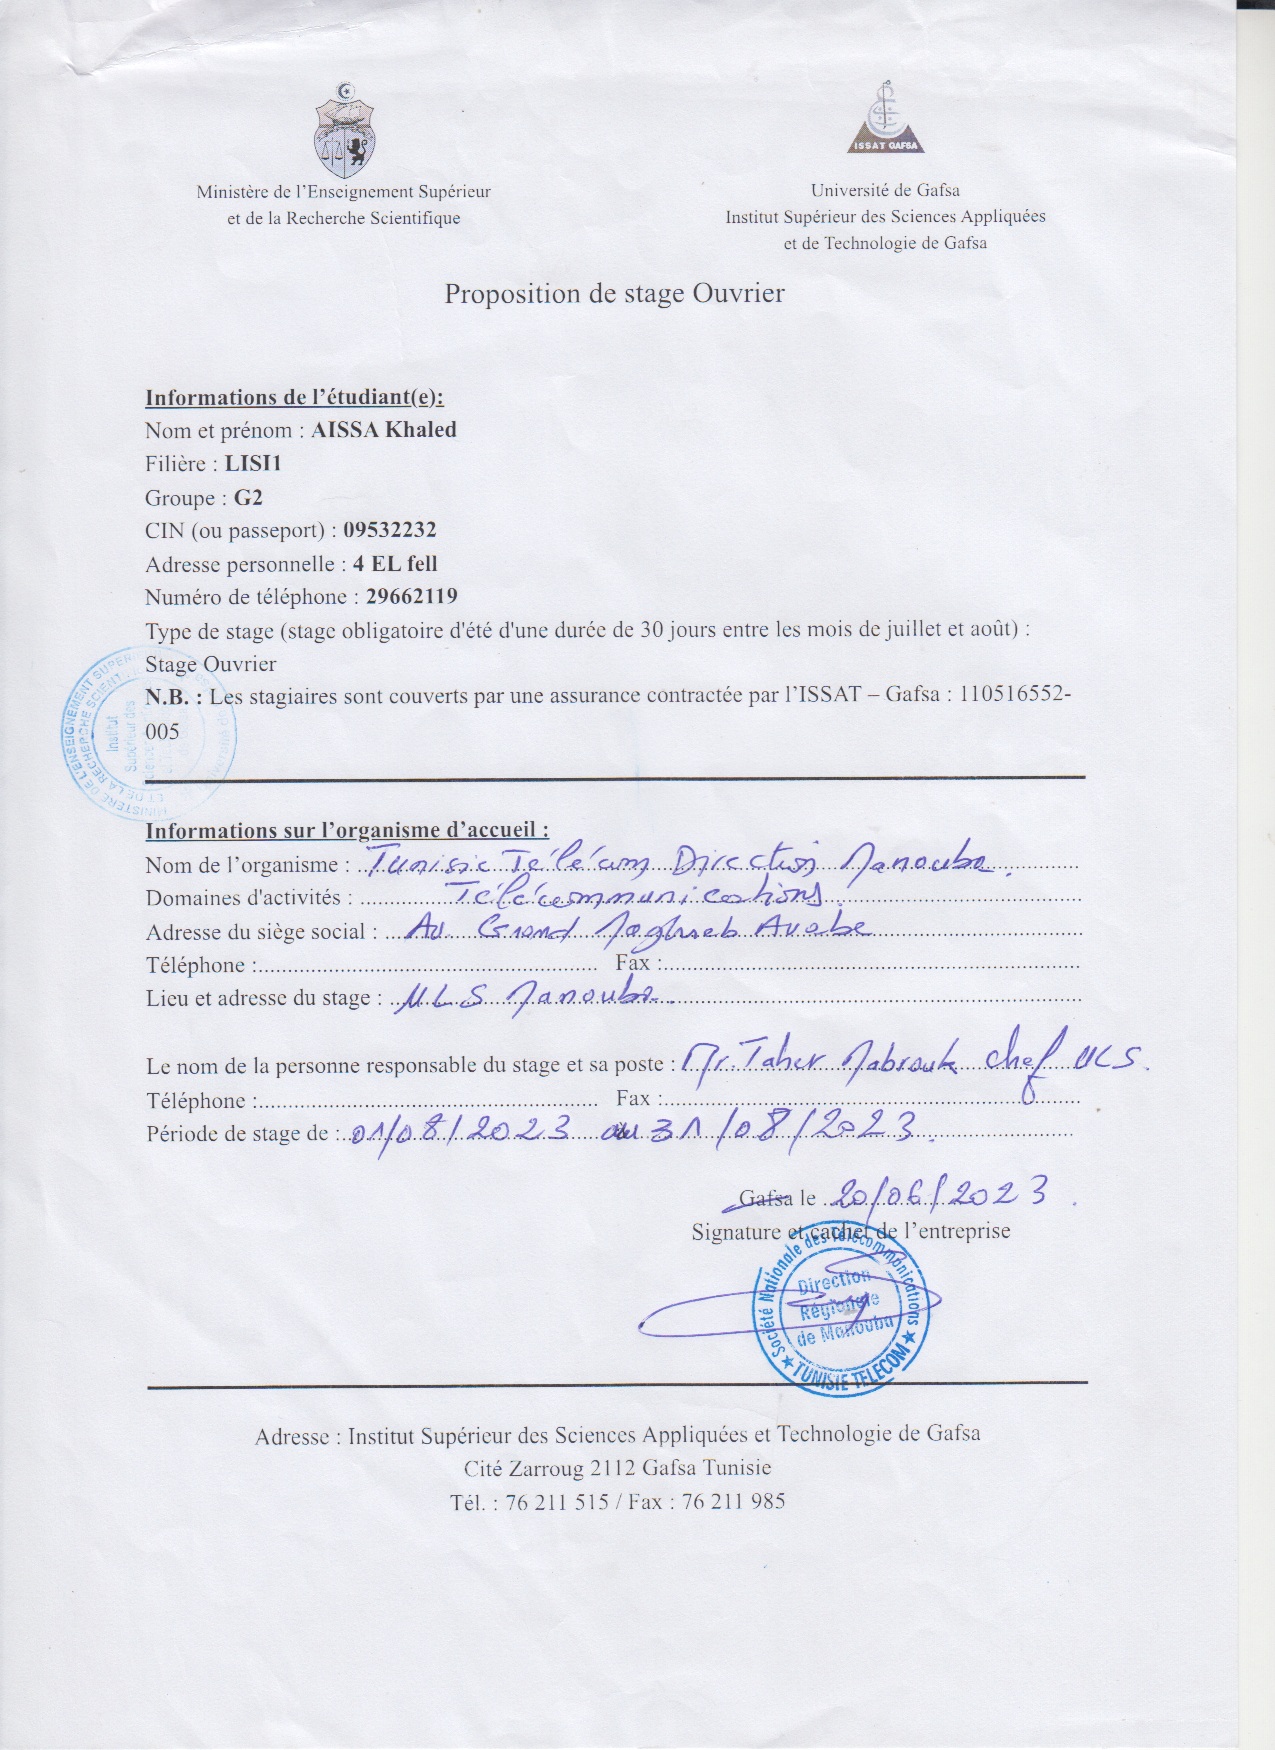 ISSAT GAFSA
Ministère de l'Enseignement Supérieur
et de la Recherche Scientifique
Université de Gafsa
Institut Supérieur des Sciences Appliquées
et de Technologie de Gafsa
Proposition de stage Ouvrier
Informations de l'étudiant(e):
Nom et prénom : AISSA Khaled
Filière : LISI1
Groupe : G2
CIN (ou passeport) : 09532232
Adresse personnelle : 4 EL fell
Numéro de téléphone : 29662119
Type de stage (stage obligatoire d'été d'une durée de 30 jours entre les mois de juillet et août) :
Stage Ouvrier
N.B. : Les stagiaires sont couverts par une assurance contractée par l'ISSAT – Gafsa : 110516552-
005
MINISTÈRE DE L'ENSEIGNEMENT SUPÉR
ET DE LA RECHERCHE SCIENT
Institut
Supérieur des
Informations sur l'organisme d'accueil :
Nom de l'organisme : Tunisie Télécom Direction Manouba.
Domaines d'activités : Télécommunications.
Adresse du siège social : Av. Grand Maghreb Arabe
Téléphone : Fax :
Lieu et adresse du stage : ULS Manouba.
Le nom de la personne responsable du stage et sa poste : Mr. Taher Mabrouk Chef ULS.
Téléphone : Fax :
Période de stage de : 01/08/2023 au 31/08/2023.
Gafsa le 20/06/2023.
Signature et cachet de l'entreprise
Société Nationale des Télécommunications
Direction
Régionale
de Manouba
★ TUNISIE TELECOM ★
Adresse : Institut Supérieur des Sciences Appliquées et Technologie de Gafsa
Cité Zarroug 2112 Gafsa Tunisie
Tél. : 76 211 515 / Fax : 76 211 985